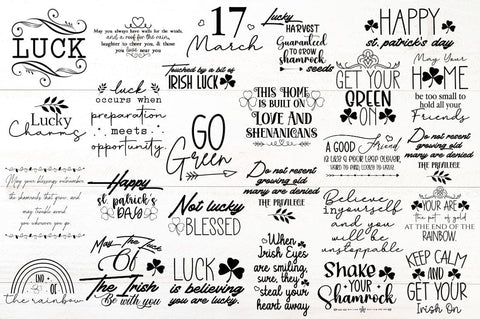 LUCK
May you always have walls for the winds,
and a roof for the rain,
laughter to cheer you, & those
you near you
17
March
Lucky
HARVEST
Guaranteed
TO GROW
shamrock
seeds
HAPPY
st. patrick's day
Touched by a bit of
IRISH LUCK
GET YOUR
GREEN
ON
May Your
HOME
be too small to
hold all your
Friends
Lucky
Charms
luck
occurs when
preparation
meets
opportunity.
GO
Green
THIS HOME
IS BUILT ON
LOVE AND
SHENANIGANS
A GOOD Friend
IS LIKE A FOUR LEAF CLOVER,
HARD TO FIND, LUCKY TO HAVE.
Do not resent
growing old
many are denied
THE PRIVILEGE
May your blessings outnumber
the shamrocks that grow, and
may trouble avoid
you wherever you go.
Happy
st patrick's
DAY
Not lucky
BLESSED
Do not resent
growing old
many are denied
THE PRIVILEGE
Believe
in yourself
and you
will be
unstoppable
YOUR ARE
the pot of gold
AT THE END OF THE
RAINBOW.
END
OF
the rainbow
May The Luck
Of
The Irish
Be with you
LUCK
is believing
you are lucky.
When
Irish Eyes
are smiling,
sure, they
steal your
heart away
Shake
YOUR
Shamrock
KEEP CALM
AND
GET YOUR
Irish On